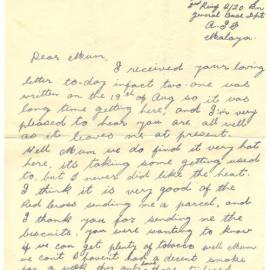 General Base Dept
A.I.F
Malaya.
Dear Mum,
I received your loving
letter to-day infact two one was
written on the 19th of Aug so, it was
long time getting here, and I'm very
pleased to hear you are all well
as it leaves me at present.
Well Mum we do find it very hot
here, its taking some getting used
to, but I never did like the heat.
I think it is very good of the
Red Cross sending me a parcel, and
I thank you for sending me the
biscuits, you were wanting to know
if we can get plenty of tobacco well Mum
we can't I havent had a decent smoke
for a week